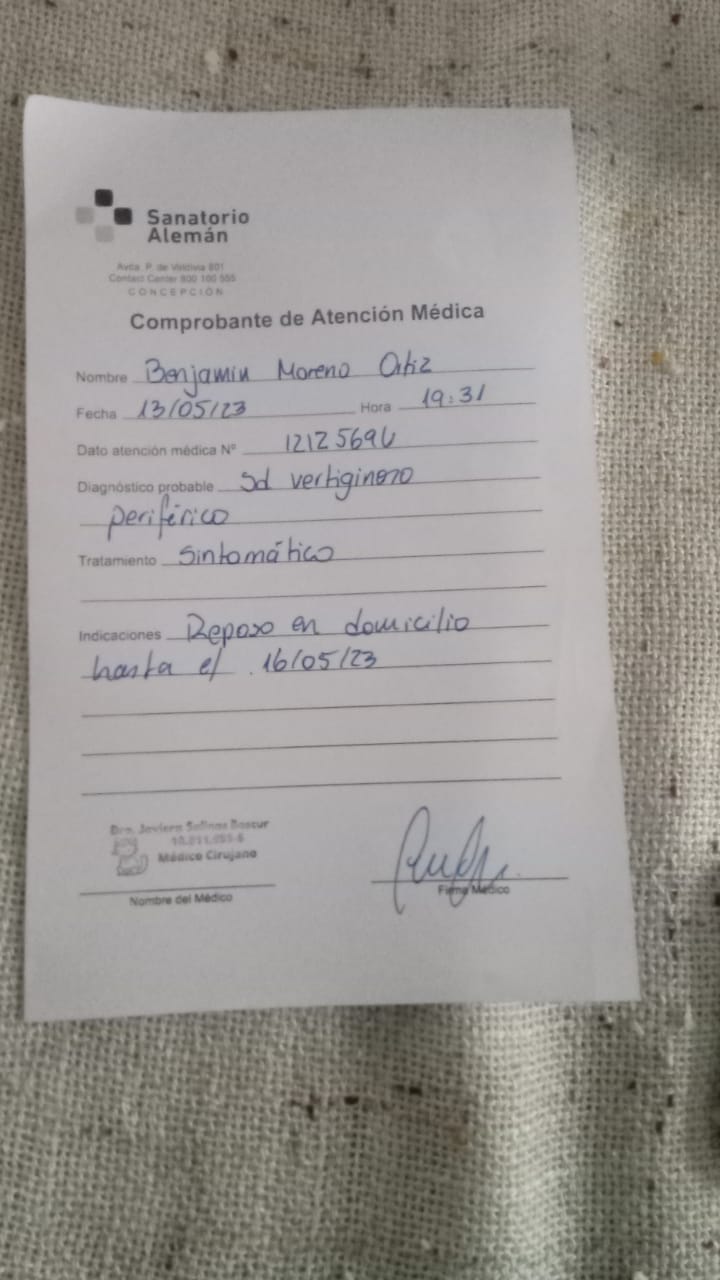 Sanatorio
Alemán
Avda. P. de Valdivia 801
Contact Center 800 100 555
CONCEPCIÓN
Comprobante de Atención Médica
Nombre Benjamin Moreno Ortiz
Fecha 13/05/23 Hora 19:31
Dato atención médica Nº
Diagnóstico probable Sd vertiginoso
periférico
Tratamiento Sintomático
Indicaciones Reposo en domicilio
hasta el 16/05/23
Dra. Javiera Salinas
Médico Cirujano
Nombre del Médico
Firma Médico